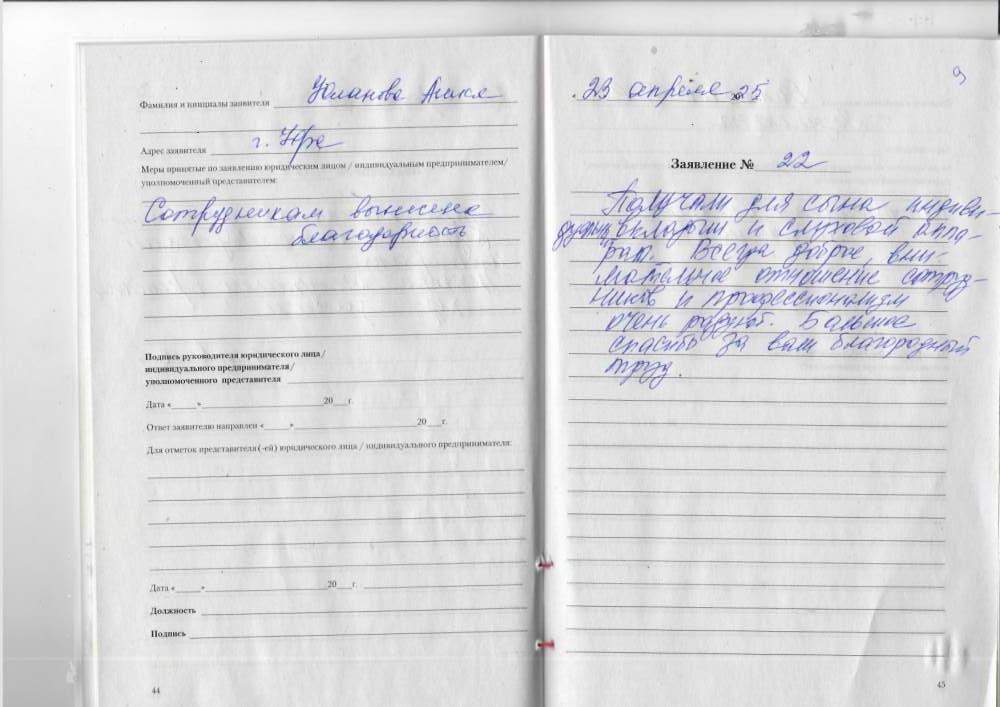 Фамилия и инициалы заявителя
Адрес заявителя г.
Меры принятые по заявлению юридическим лицом / индивидуальным предпринимателем/
уполномоченный представителем:
Сотрудникам вынесена
благодарность
Подпись руководителя юридического лица/
индивидуального предпринимателя/
уполномоченного представителя
Дата «____»____20___г.
Ответ заявителю направлен «____»____20___г.
Для отметок представителя (-ей) юридического лица / индивидуального предпринимателя:
Дата «____»____20___г.
Должность
Подпись
44
9
23 апреля 25
Заявление № 22
Получали для сына индиви-
вкладыш и слуховой аппа-
рат. Всегда доброе, вни-
мательное отношение сотруд-
ников и профессионализм
очень радуют. Большое
спасибо за ваш благородный
труд.
45